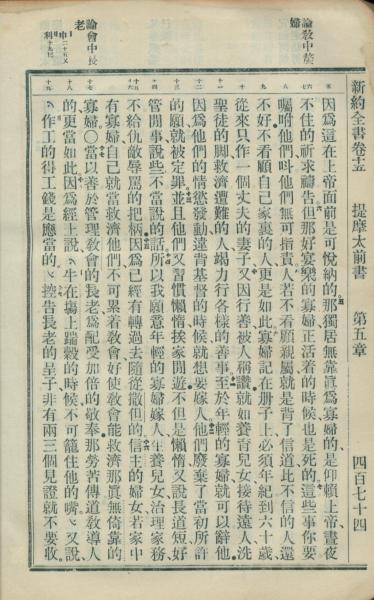 新約全書卷十五　提摩太前書　第五章　四百七十四
論敎中寡
婦
論會中長
老
因爲這在上帝面前是可悅納的那獨居無靠眞爲寡婦的是仰賴上帝晝夜
不住的祈求禱告、但那好宴樂的寡婦正活着的時候也是死的、這些事你要
囑咐他們呌他們無可指責、人若不看顧親屬就是背了信道比不信的人還
不好、不看顧自己家裏的人更是如此、寡婦記在册子上必須年紀到六十歲、
從來只作一個丈夫的妻子、又因行善被人稱讚就如養育兒女接待遠人洗
聖徒的脚救濟遭難的人竭力行各樣的善事、至於年輕的寡婦就可以辭他
因爲他們的情慾發動違背基督的時候就想要嫁人、他們廢棄了當初所許
的願就被定罪、並且他們又習慣懶惰挨家閒遊不但是懶惰又說長道短好
管閒事說些不當說的話、所以我願意年輕的寡婦嫁人生養兒女治理家務
不給仇敵辱罵的把柄、因爲已經有轉過去隨從撒但的、信主的婦女若家中
有寡婦自己就當救濟他們不可累着教會好使教會能救濟那眞無倚靠的
寡婦○當以善於管理敎會的長老爲配受加倍的敬奉、那勞苦傳道敎導人
的更當如此、因爲經上說、牛在場上踹穀的時候不可籠住他的嘴、又說、
作工的得工錢是應當的、控告長老的呈子非有兩三個見證就不要收、